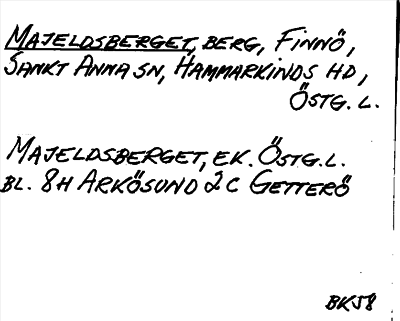 MAJELDSBERGET, BERG, FINNÖ,
SANKT ANNA SN, HAMMARKINDS HD,
ÖSTG. L.
MAJELDSBERGET, EK. ÖSTG. L.
BL. 8H ARKÖSUND 2C GETTERÖ
BKJ8